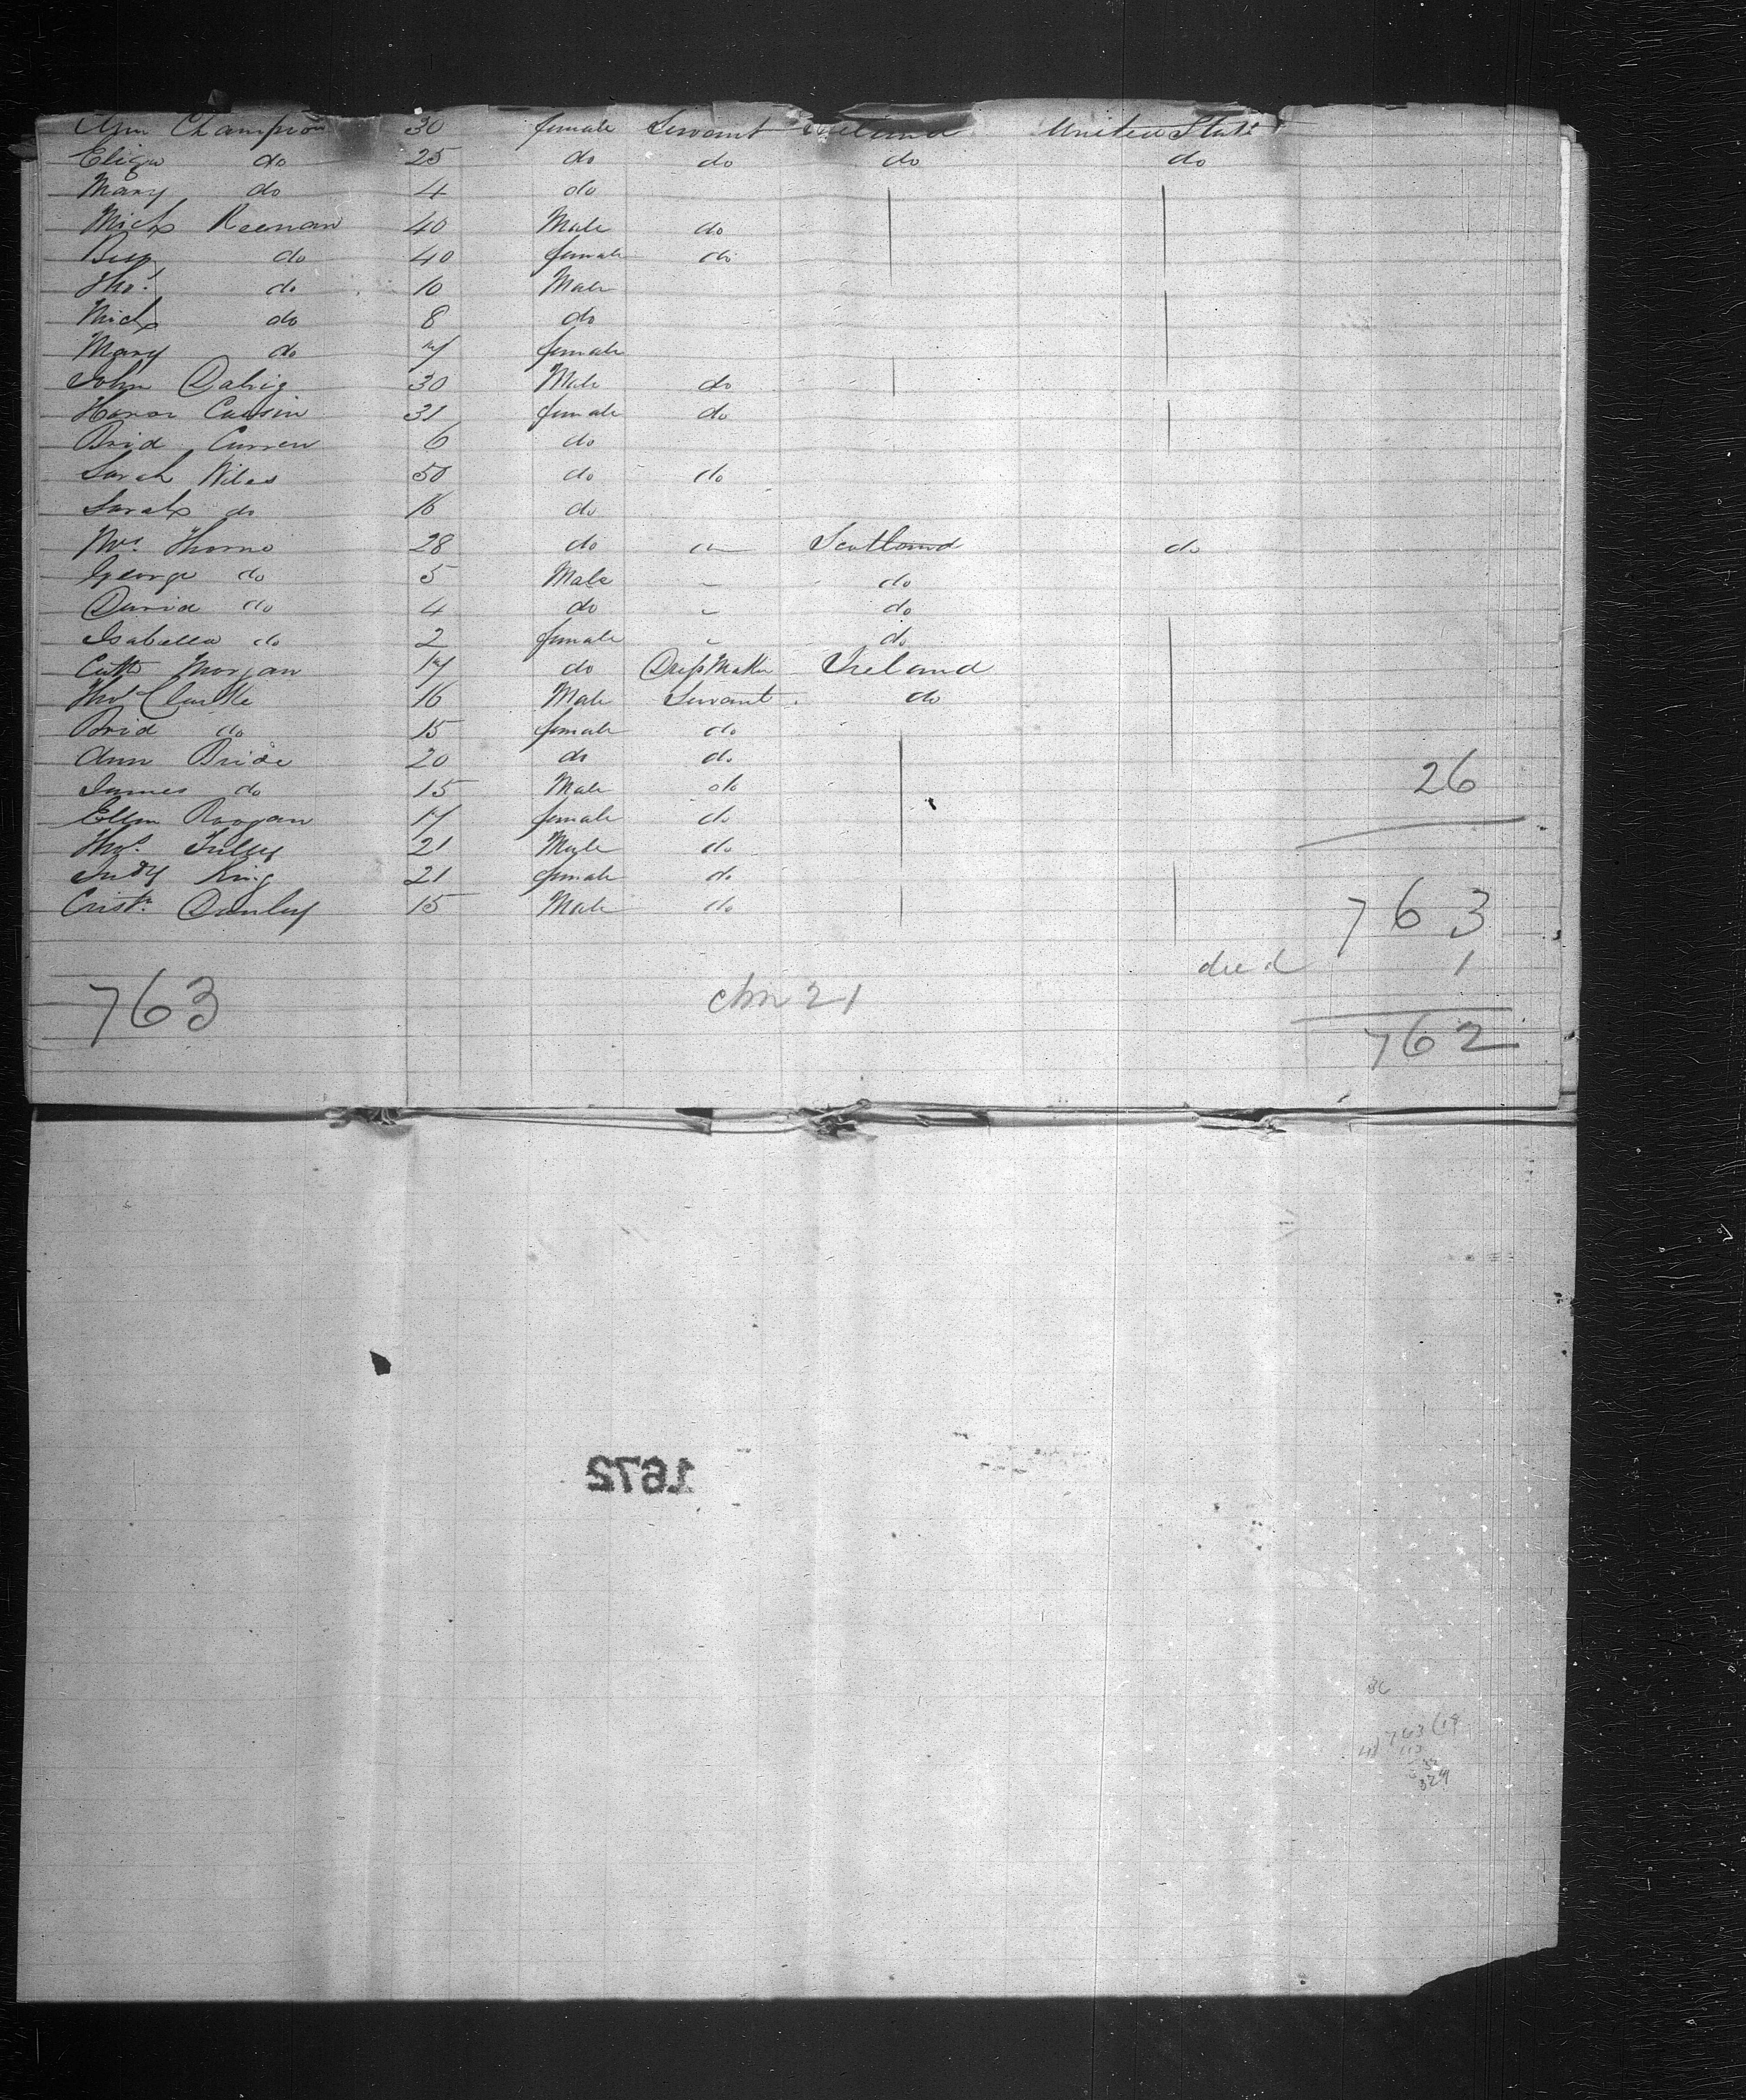 Ann Champion 30 female Servant Ireland United States
Eliza do 25 do do do do
Mary do 4 do
Mich Keenan 40 Male do
Bess do 40 female do
Thos do 10 Male
Mich do 8 do
Mary do 7 female
John Dahig 30 Male do
Honor Cassin 31 female do
Brid Curren 6 do
Sarah Niles 50 do do
Sarah do 16 do
Mrs Thorne 28 do Scotland do
George do 5 Male do
David do 4 do do
Isabella do 2 female do
Cath Morgan 17 do Dress Maker Ireland
Thos Clarke 16 Male Servant do
Brid do 15 female do
Ann Bride 20 do do
James do 15 Male do 26
Ellen Roogan 17 female do
Thos Tully 21 Male do
Judy King 21 female do
Cristr Danley 15 Male do 763
died 1
763 chn 21
762
1672
763 (19
324